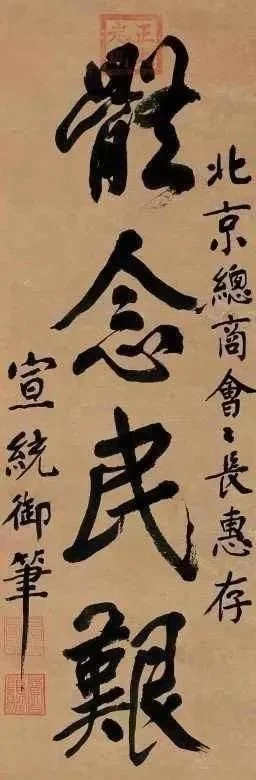 北京總商會〻長惠存
體念民艱
宣統御筆